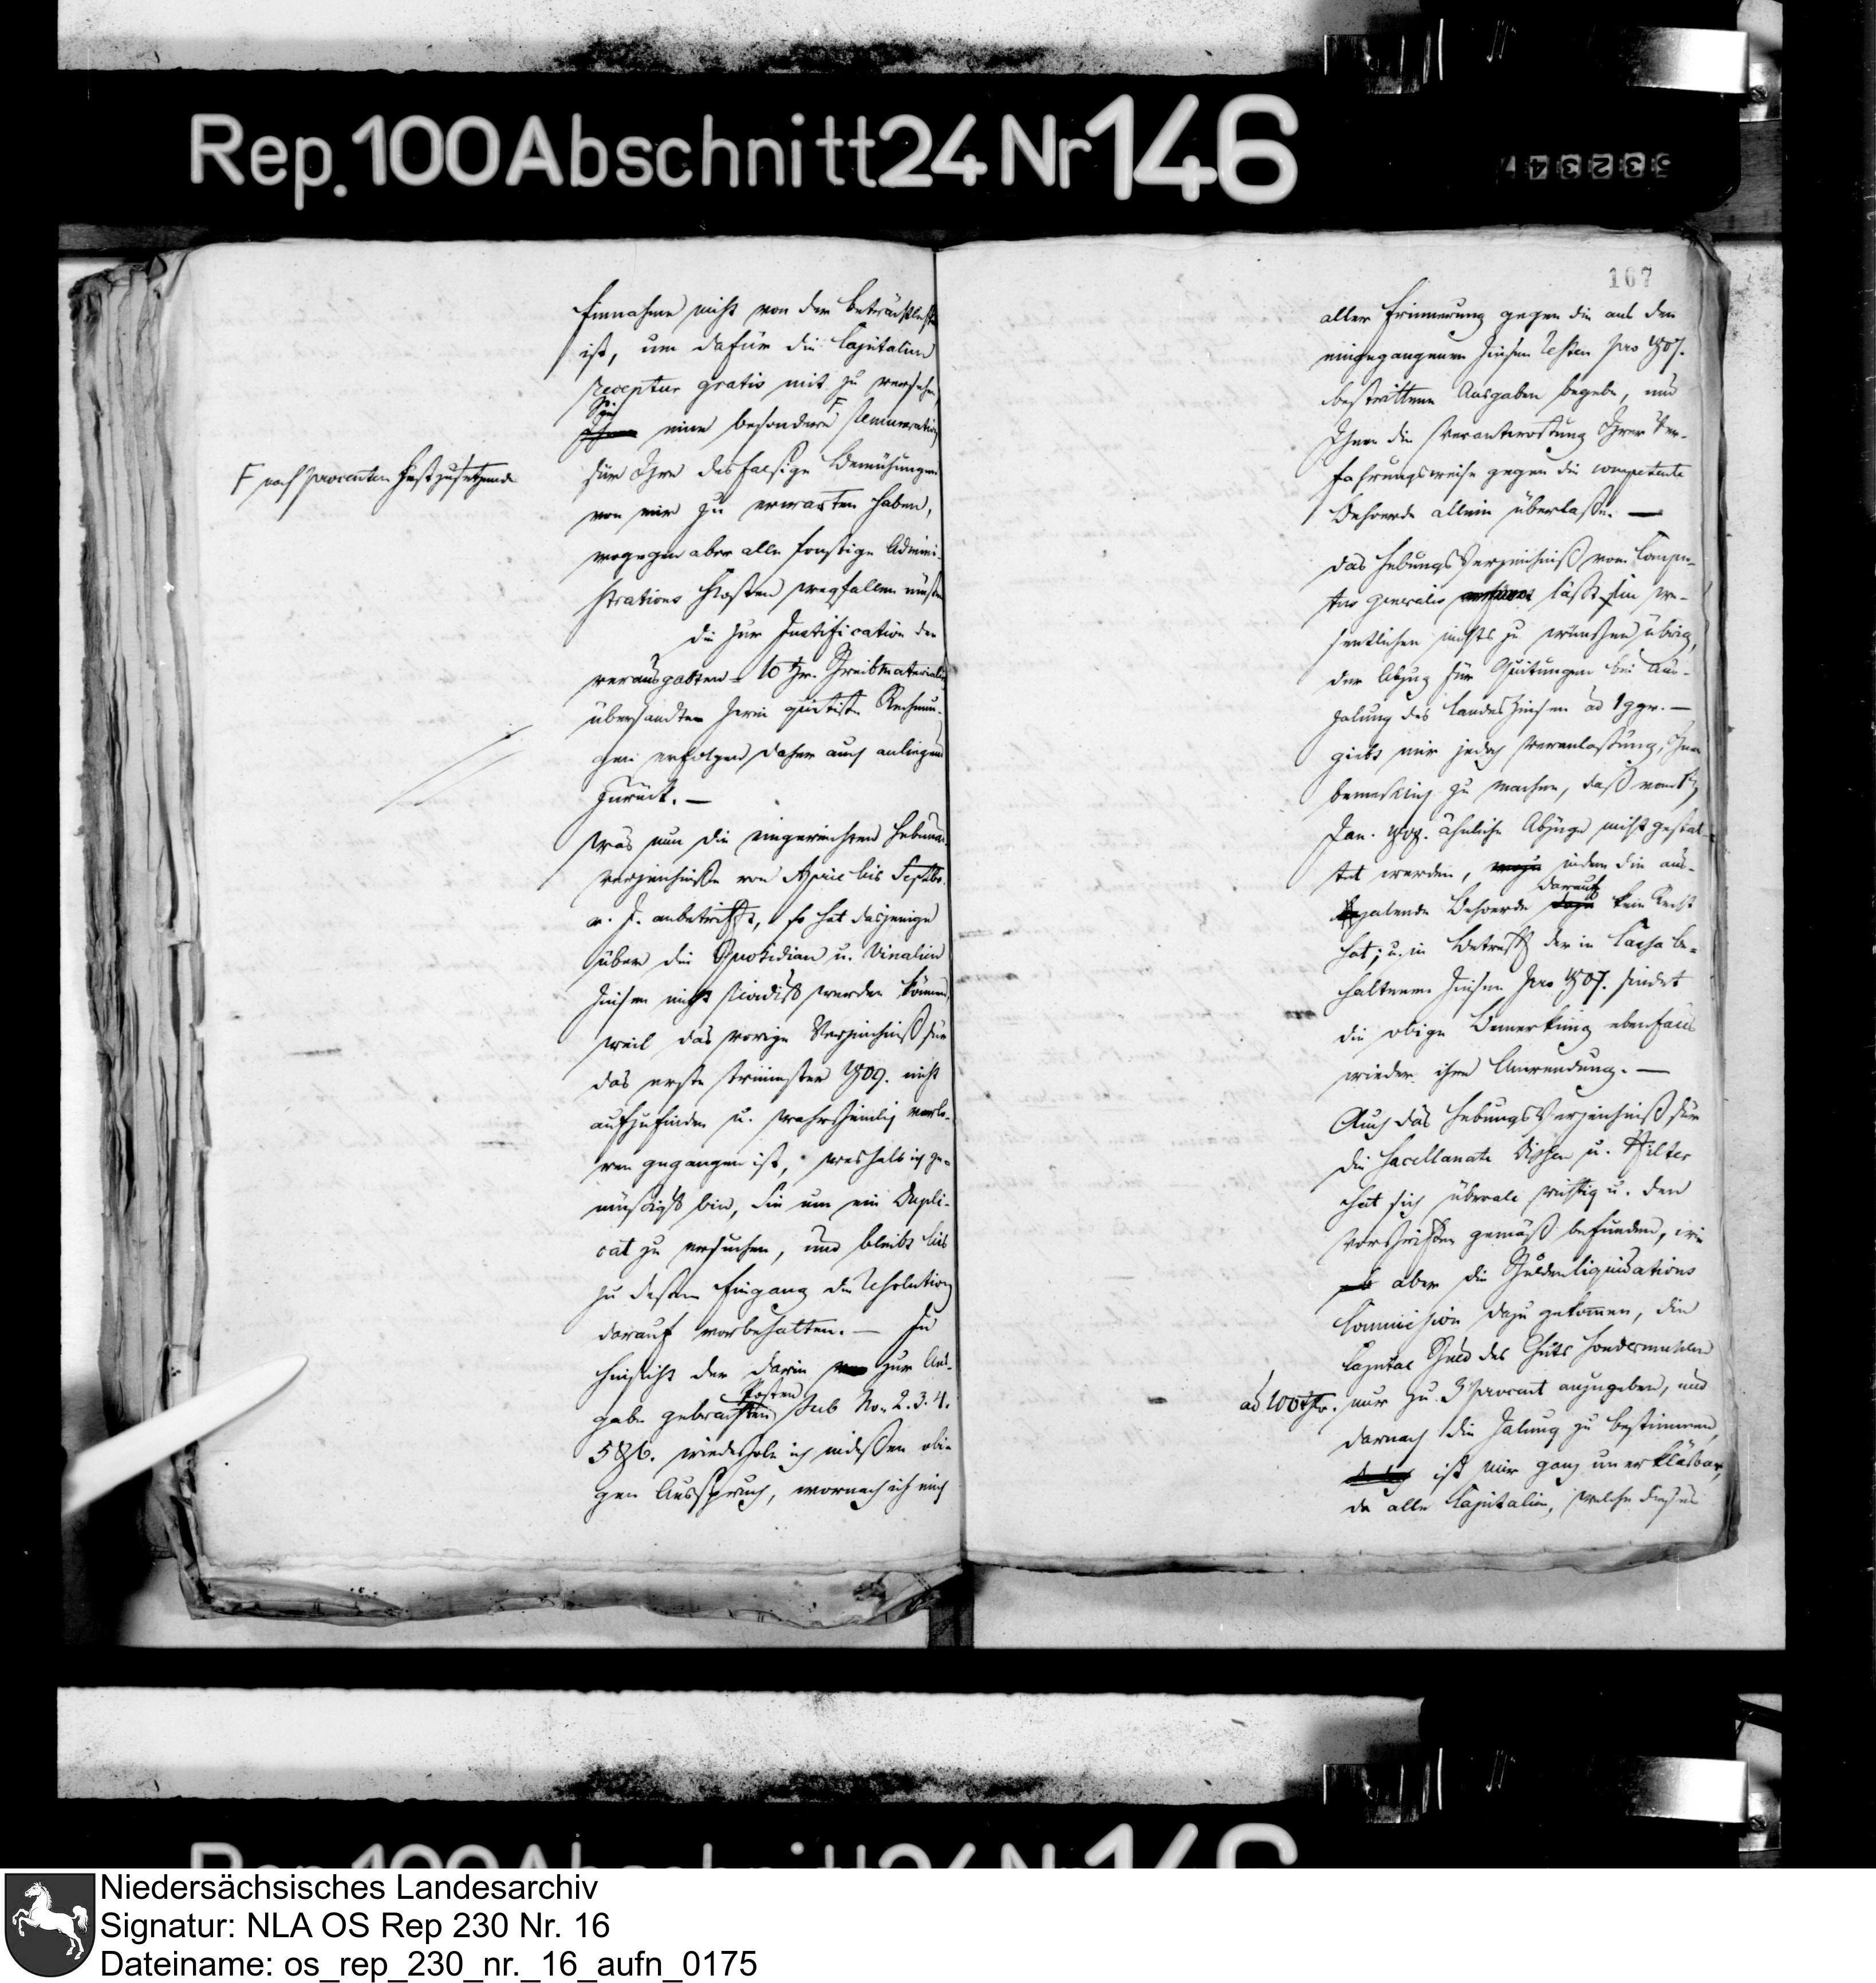 Rep. 100 Abschnitt 24 Nr 146
53234
Einnahme nicht von der beträchtlichst
ist, um dafür die Capitalien
receptur gratis mit zu versehen,
Sie
eine besondere F Remuneration
für Ihre desfalsige Bemühungen
von mir zu erwarten haben,
F nach Procenten festzusetzende
wogegen aber alle sonstige Admini-
strations Kosten wegfallen müßen
Die zur Justification der
verausgabten 10 gr. Schreibmaterialien
übersandten zwei quitirte Rechnun-
gen erfolgen daher auch anliegend
zurück. —
Was nun die eingereichten Hebungs-
verzeichniße von April bis Septbr.
a. p. anbetrifft, so hat dasjenige
über die Quotidian u. Vinalien
Zinsen nicht revidirt werden können,
weil das vorige Verzeichniß für
das erste Trimester 1809. nicht
aufzufinden u. wahrscheinlich verlo-
ren gegangen ist, weshalb ich ge-
müßigt bin, Sie um ein Dupli-
cat zu ersuchen, und bleibt bis
zu deßen Eingang die Resolution
darauf vorbehalten. — In
Hinsicht der darin zur Aus-
gabe gebrachten Posten sub No. 2. 3. 4.
5 & 6. wiederhole ich indeßen obi-
gen Ausspruch, wornach ich mich
167
aller Erinnerung gegen die aus den
eingegangenen Zinsen Resten pro 1807.
bestrittene Ausgaben begebe, und
Ihnen die Verantwortung Ihrer Ver-
fahrungsweise gegen die competente
Behoerde allein überlaße. —
Das Hebungs Verzeichniß vom Compu-
tus generalis läßt im we-
sentlichen nichts zu wünschen übrig,
der Abzug für Quitungen bei Aus-
zalung der Landes Zinsen ad 1 ggr. —
giebt mir jedoch Veranlaßung, Ihnen
bemerklich zu machen, daß vom 1ten
Jan. 1808. ähnliche Abzüge nicht gestat-
tet werden, indem die aus-
zalende Behoerde darauf kein Recht
hat; u. in Betreff der in Cassa be-
haltenen Zinsen pro 1807. findet
die obige Bemerkung ebenfals
wieder ihre Anwendung. —
Auch das Hebungs Verzeichniß für
die Sacellanate Dissen u. Hilter
hat sich überall richtig u. den
Vorschriften gemäß befunden, wie
aber die Schuldenliquidations
Commission dazu gekommen, die
Capital Schuld des Guts Sondermühlen
ad 100 thlr. nur zu 3 procent anzugeben, und
darnach die Zalung zu bestimmen,
ist mir ganz unerklärbar,
da alle Capitalien, welche dieses
Niedersächsisches Landesarchiv
Signatur: NLA OS Rep 230 Nr. 16
Dateiname: os_rep_230_nr._16_aufn_0175